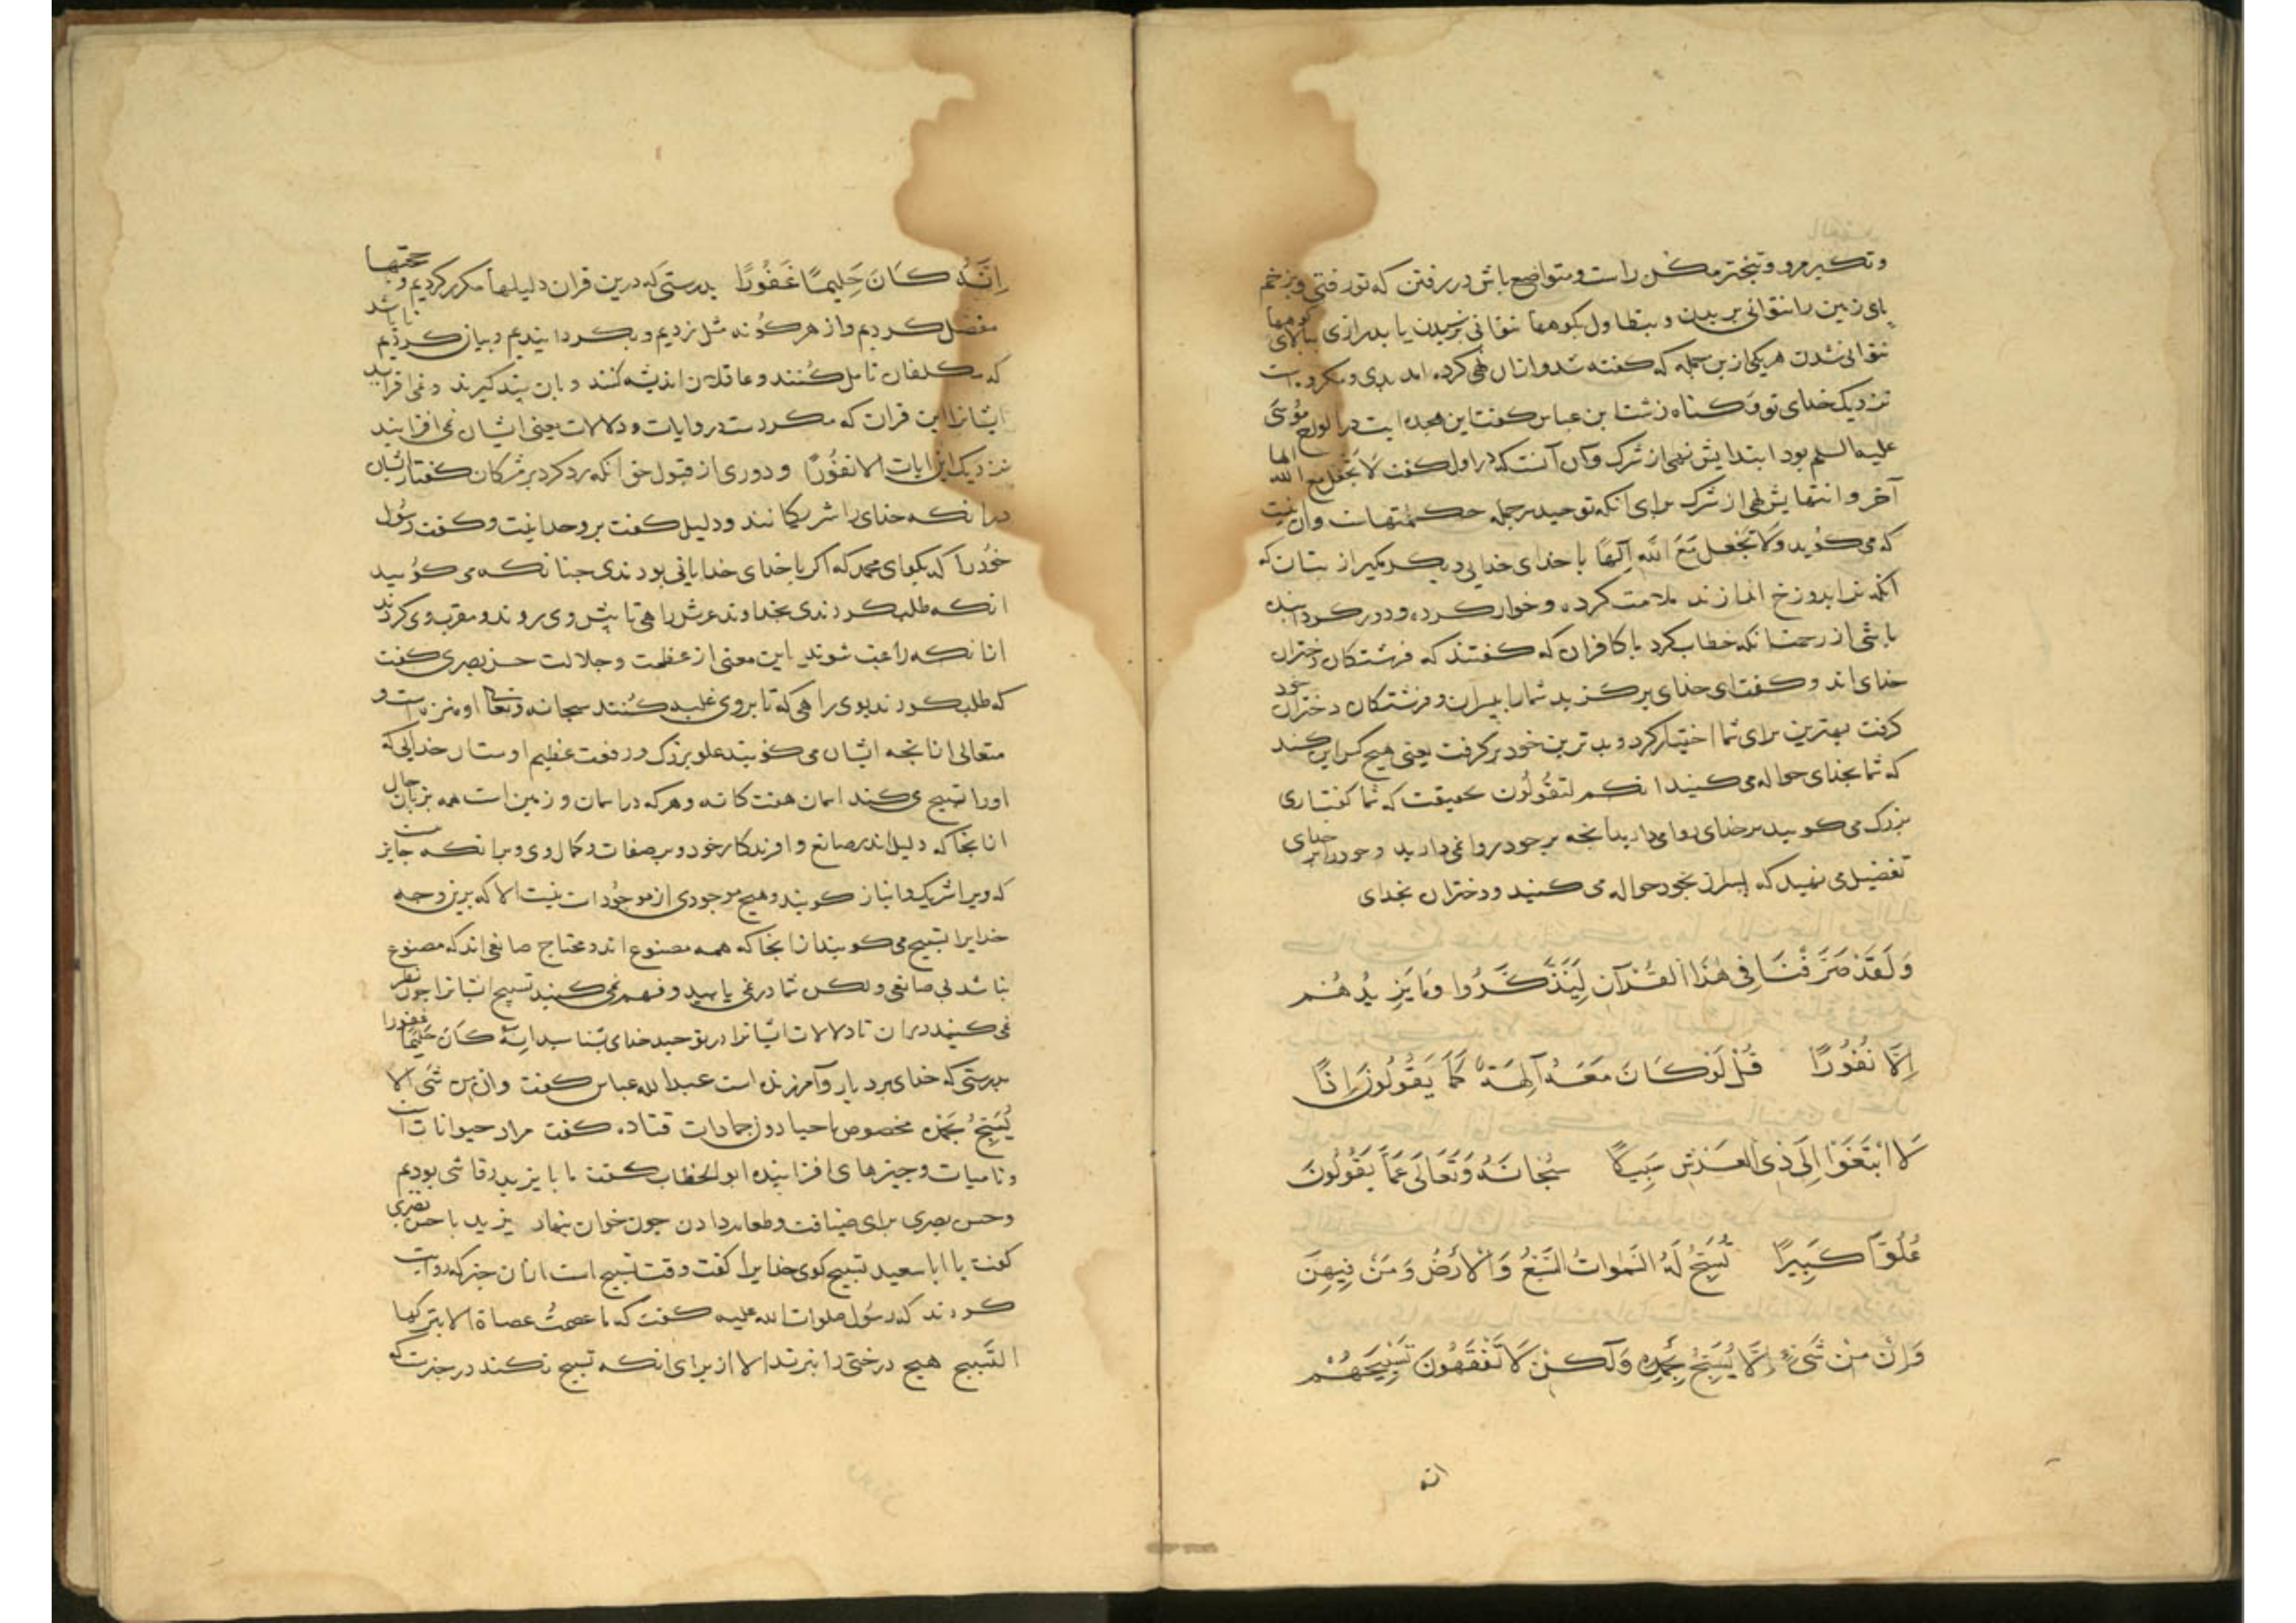 وتکبر مرو وتبختر مکن راست ومتواضع باش در رفتن که تو رفتی وبزخم
پای زمین را نتوانی بریدن وبتطاول بکوهها نتوانی رسیدن یا بدرازی ببالای کوهها
نتوانی شدن هریکی ازین جمله که کفته شد وازان نهی کرده آمد بدی ومکروه است
نزدیک خدای تو وکناه زشت ابن عباس کفت این هجده ایت در الواح موسی
علیه السلم بود ابتدایش نهی از شرک وآن آنست که در اول کفت لا تجعل مع الله الها
آخر وانتهایش نهی از شرک برای انکه توحید سرجمله حکمتهاست وان اینست
که می کوید وَلا تَجْعَل مَعَ اللهِ اِلٰهًا با خدای خدایی دیکر مکیر از بتان که
انکه ترا بدوزخ اندازند ملامت کرده وخوار کرده ودور کردانیده
باشی از رحمت انکه خطاب کرد با کافران که کفتند که فرشتکان دختران
خدای اند وکفت ای خدای برکزید شما را بپسران وفرشتکان دختران خود
کرفت بهترین برای شما اختیار کرد وبدترین خود برکرفت یعنی هیچ کس این کند
که شما بخدای حواله می کنید انکم لتقولون حقیقت که شما کفتاری
بزرک می کویید بر خدای روا می دارید انچه بر خود روا نمی دارید وخود را بر خدای
تفضیل می نهید که پسران بخود حواله می کنید ودختران بخدای
وَلَقَدْ صَرَّفْنَا فِی هٰذَا الْقُرْآنِ لِیَذَّکَّرُوا وَمَا یَزِیدُهُمْ
اِلَّا نُفُورًا قُلْ لَوْ کَانَ مَعَهُ آلِهَةٌ کَمَا یَقُولُونَ اِذًا
لَا ابْتَغَوْا اِلَی ذِی الْعَرْشِ سَبِیلًا سُبْحَانَهُ وَتَعَالَی عَمَّا یَقُولُونَ
عُلُوًّا کَبِیرًا تُسَبِّحُ لَهُ السَّمٰوَاتُ السَّبْعُ وَالْاَرْضُ وَمَنْ فِیهِنَّ
وَاِنْ مِنْ شَیْءٍ اِلَّا یُسَبِّحُ بِحَمْدِهِ وَلٰکِنْ لَا تَفْقَهُونَ تَسْبِیحَهُمْ
انه
اِنَّهُ کَانَ حَلِیمًا غَفُورًا بدرستی که درین قران دلیلها مکرر کردیم وحجتها
مفصل کردیم واز هر کونه مثل زدیم وبکردانیدیم وبیان کردیم تا باشد
که مکلفان تامل کنند وعاقلان اندیشه کنند وبان پند کیرند ونمی افزاید
ایشانرا این قران که مکررست در وایات ودلالات یعنی ایشان نمی افزایند
نزدیک این ایات الا نفُورًا ودوری از قبول حق انکه رد کرد بر مشرکان کفتار ایشان
درانکه خدای را شریک مانند ودلیل کفت بر وحدانیت وکفت رسول
خود را که بکو ای محمد که اکر با خدای خدایانی بودندی چنانکه می کویید
انکه طلب کردندی بخداوند عرش راهی تا پیش وی روند ومقرب وی کردند
انانکه راغب شوند این معنی از عظمت وجلالت حسن بصری کفت
که طلب کردند بوی راهی که تا بروی غلبه کنند سبحانه وتعالی او منزه است و
متعالی از انچه ایشان می کویند علو بزرک ورفعت عظیم اوست آن خدایی که
اورا تسبیح می کند اسمان هفت کانه وهرکه در اسمان وزمین است همه بزبان حال
ازانجا که دلیل اند بر صانع وافریدکار خود وبر صفات وکمال وی وبرانکه جایز نیست
که ویرا شریک وانباز کویند وهیچ موجودی از موجودات نیست الا که برین وجه
خدایرا تسبیح می کویند ازانجا که همه مصنوع اند ومحتاج صانعی اند که مصنوع
نباشد بی صانعی ولکن شما در نمی یابید وفهم نمی کنید تسبیح ایشانرا چون نظر
نمی کنید دران تا دلالات ایشانرا در توحید خدای بشناسید اِنَّهُ کَانَ حَلِیمًا غفورا
بدرستی که خدای بردبار وآمرزنده است عبدالله عباس کفت وان من شَیء الا
یُسَبِّحُ بِحَمْدِه مخصوص باحیا دون جمادات قتاده کفت مراد حیوانات است
ونامیات وچیزهای افزاینده ابو الخطاب کفت ما با یزید رقاشی بودیم
وحسن بصری برای ضیافت وطعام دادن چون خوان بنهاد یزید با حسن بصری
کفت یا ابا سعید تسبیح کوی خدایرا کفت وقت تسبیح است ازان خبر که روایت
کردند که رسول صلوات الله علیه کفت که ما عصمتُ عصاة الا بترکها
التسبیح هیچ درختی را نبرند الا از برای انکه تسبیح نکند در خبرست که